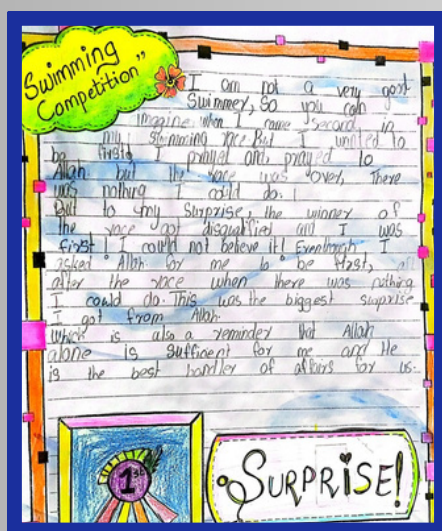 "Swimming
Competition"
I am not a very good
Swimmer, So you can
imagine when I came second in
my swimming race. But I wanted to
be first. I prayed and prayed to
Allah but the race was over, There
was nothing I could do.
But to my surprise, the winner of
the race got disqualified and I was
first! I could not believe it! Eventhough I
asked Allah for me to be first, all
after the race when there was nothing
I could do. This was the biggest surprise
I got from Allah.
Which is also a reminder that Allah
alone is sufficent for me and He
is the best handler of affairs for us.
1st
SURPRISE!